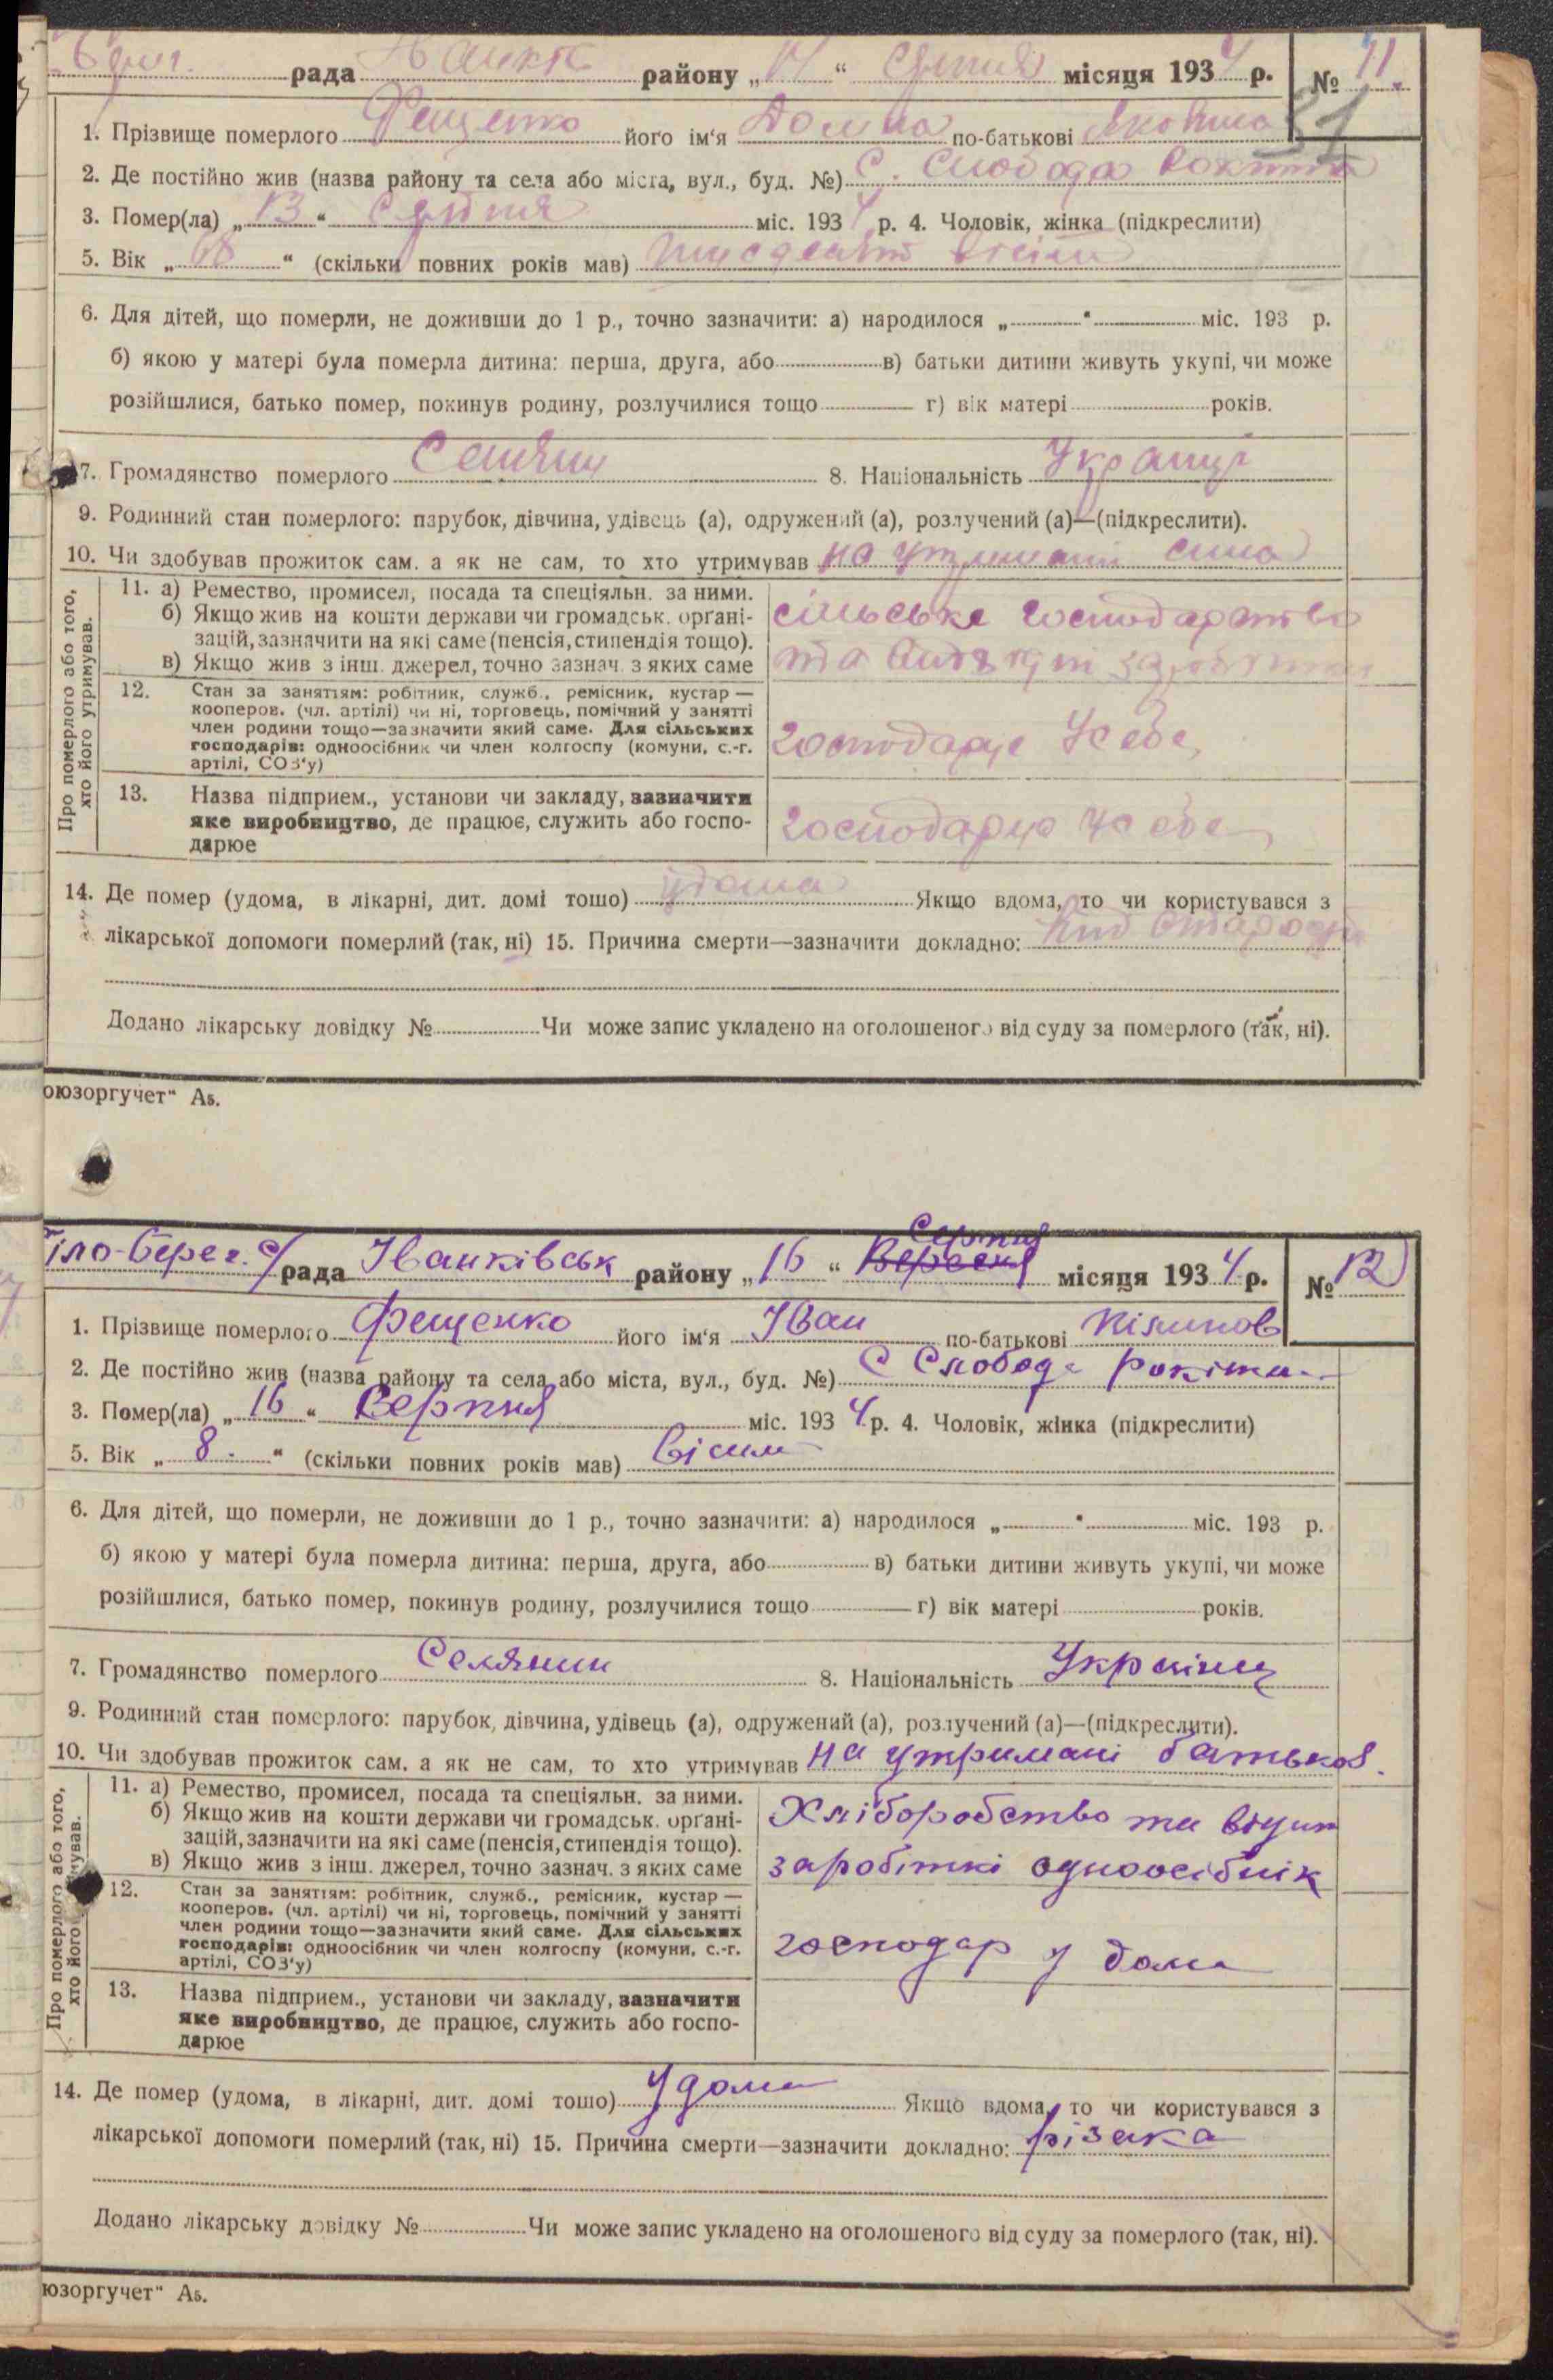 рада район „14“ серпня місяця 1934 р. № 11.
31
1. Прізвище померлого Фещенко його ім‘я по-батькові
2. Де постійно жив (назва району та села або міста, вул., буд. №) С. Слобода
3. Помер(ла) „13“ Серпня міс. 1934 р. 4. Чоловік, жінка (підкреслити)
5. Вік „68“ (скільки повних років мав) шисдесят вісім
6. Для дітей, що померли, не доживши до 1 р., точно зазначити: а) народилося „ “ міс. 193 р.
б) якою у матері була померла дитина: перша, друга, або в) батьки дитини живуть укупі, чи може
розійшлися, батько помер, покинув родину, розлучилися тощо г) вік матері років.
7. Громадянство померлого Селянин 8. Національність
9. Родинний стан померлого: парубок, дівчина, удівець (а), одружений (а), розлучений (а)—(підкреслити).
10. Чи здобував прожиток сам. а як не сам, то хто утримував на сина
Про померлого або того, хто його утримував.
11. а) Ремество, промисел, посада та спеціяльн. за ними.
б) Якщо жив на кошти держави чи громадськ. орґані-
зацій, зазначити на які саме (пенсія, стипендія тощо).
в) Якщо жив з інш. джерел, точно зазнач. з яких саме
сільське господарство
та
12. Стан за заняттям: робітник, служб., ремісник, кустар —
кооперов. (чл. артілі) чи ні, торговець, помічний у занятті
член родини тощо—зазначити який саме. Для сільських
господарів: одноосібник чи член колгоспу (комуни, с.-г.
артілі, СОЗ‘у)
господарує Усебе
13. Назва підприєм., установи чи закладу, зазначити
яке виробництво, де працює, служить або госпо-
дарює
господарує Усебе
14. Де помер (удома, в лікарні, дит. домі тощо) удома Якщо вдома, то чи користувався з
лікарської допомоги померлий (так, ні) 15. Причина смерти—зазначити докладно: старости
Додано лікарську довідку № Чи може запис укладено на оголошеного від суду за померлого (так, ні).
оюзоргучет“ А5.
Серпня
іло-Берег. с/рада Іванківськ району „16“ Вересня місяця 1934 р. № 12
1. Прізвище померлого Фещенко його ім‘я Іван по-батькові
2. Де постійно жив (назва району та села або міста, вул., буд. №) С Слобода
3. Помер(ла) „16“ Серпня міс. 1934 р. 4. Чоловік, жінка (підкреслити)
5. Вік „8.“ (скільки повних років мав) Вісим
6. Для дітей, що померли, не доживши до 1 р., точно зазначити: а) народилося „ “ міс. 193 р.
б) якою у матері була померла дитина: перша, друга, або в) батьки дитини живуть укупі, чи може
розійшлися, батько помер, покинув родину, розлучилися тощо г) вік матері років.
7. Громадянство померлого Селянин 8. Національність Українец
9. Родинний стан померлого: парубок, дівчина, удівець (а), одружений (а), розлучений (а)—(підкреслити).
10. Чи здобував прожиток сам. а як не сам, то хто утримував на утримані батьков.
Про померлого або того, хто його
11. а) Ремество, промисел, посада та спеціяльн. за ними.
б) Якщо жив на кошти держави чи громадськ. орґані-
зацій, зазначити на які саме (пенсія, стипендія тощо).
в) Якщо жив з інш. джерел, точно зазнач. з яких саме
Хліборобство та
заробіткі одноосібнік
12. Стан за заняттям: робітник, служб., ремісник, кустар —
кооперов. (чл. артілі) чи ні, торговець, помічний у занятті
член родини тощо—зазначити який саме. Для сільських
господарів: одноосібник чи член колгоспу (комуни, с.-г.
артілі, СОЗ‘у)
господар у дома
13. Назва підприєм., установи чи закладу, зазначити
яке виробництво, де працює, служить або госпо-
дарює
14. Де помер (удома, в лікарні, дит. домі тощо) Удома Якщо вдома, то чи користувався з
лікарської допомоги померлий (так, ні) 15. Причина смерти—зазначити докладно: різака
Додано лікарську довідку № Чи може запис укладено на оголошеного від суду за померлого (так, ні).
юзоргучет“ А5.